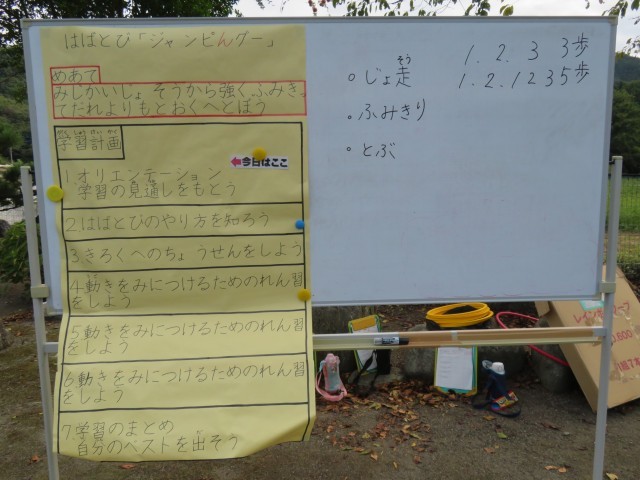 はばとび「ジャンピんグー」
めあて
みじかいじょそうから強くふみきっ
てだれよりもとおくへとぼう
がくしゅうけいかく
学習計画
今日はここ
1オリエンテーション
学習の見通しをもとう
2はばとびのやり方を知ろう
3きろくへのちょうせんをしよう
4動きをみにつけるためのれん習
をしよう
5動きをみにつけるためのれん習
をしよう
6動きをみにつけるためのれん習
をしよう
7学習のまとめ
自分のベストを出そう
1.2.3 3歩
そう
。じょ走 1.2.1235歩
。ふみきり
。とぶ